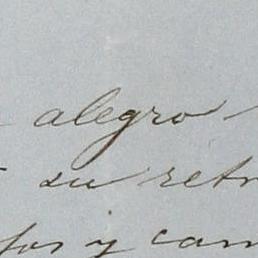 alegro
su retr
fos y cam